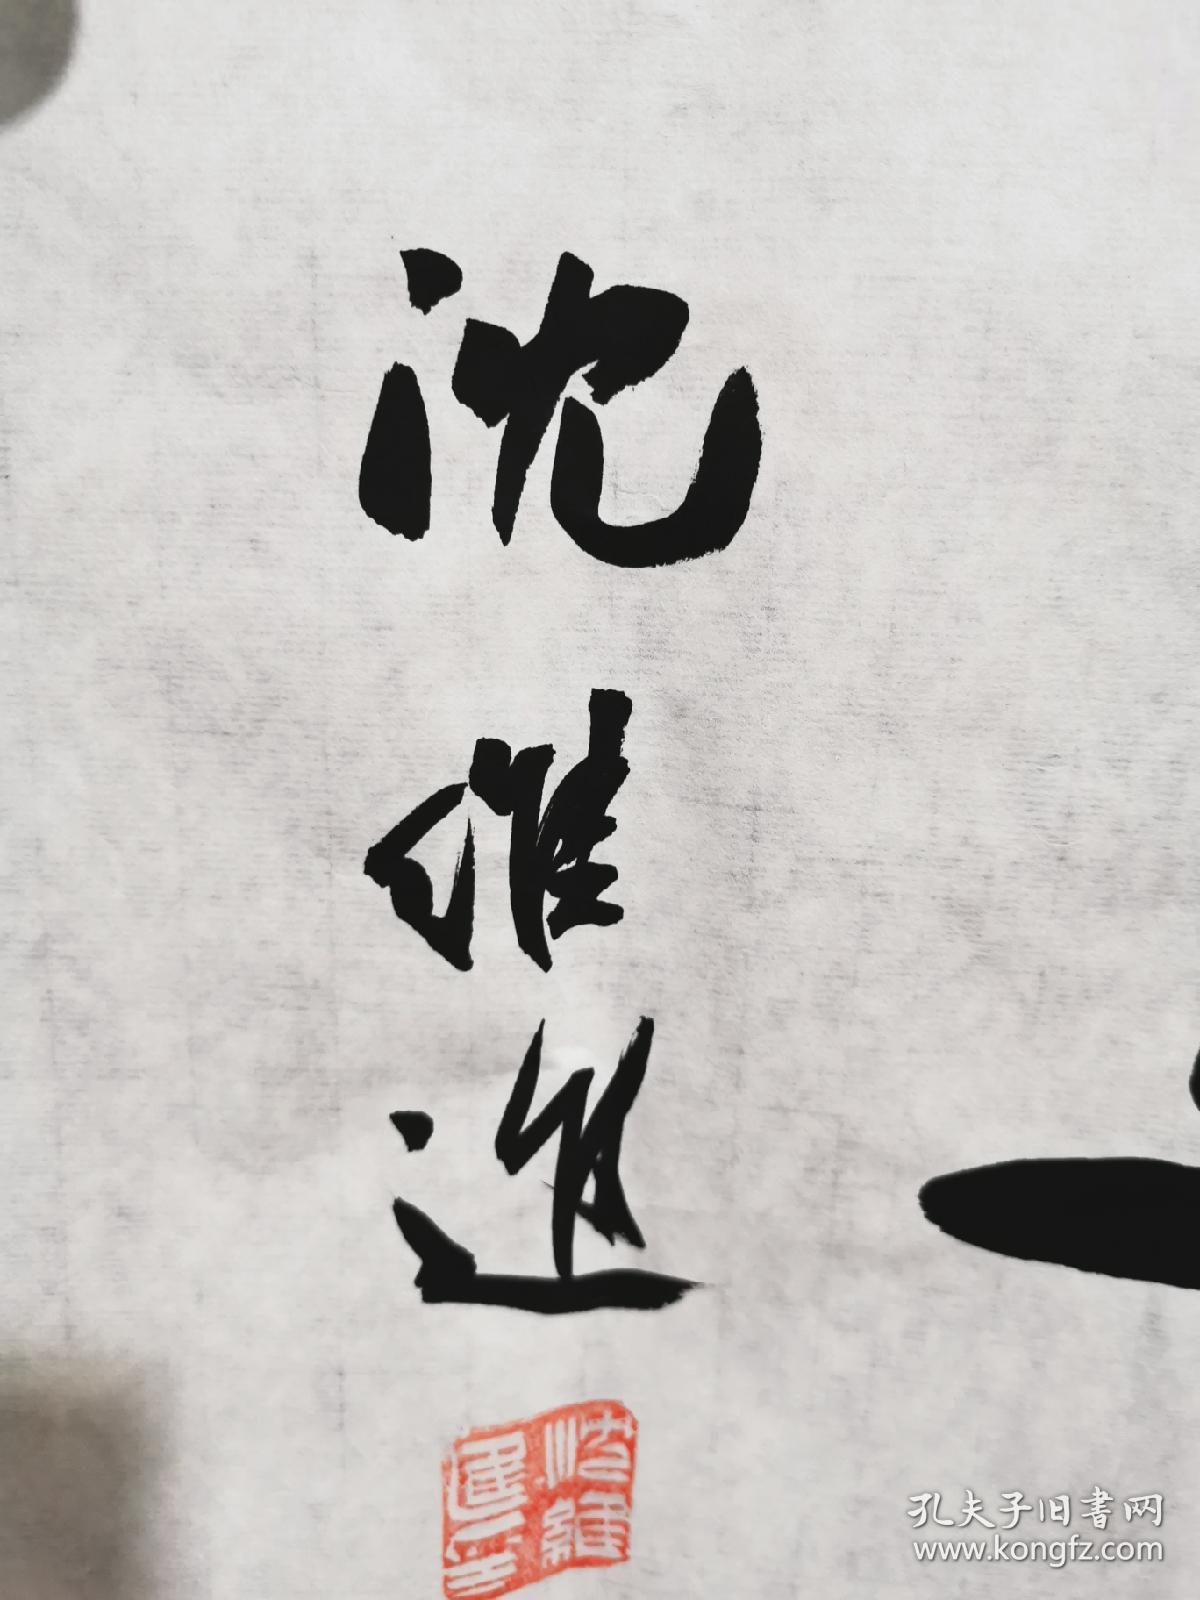 沈維進
孔夫子旧书网
www.kongfz.com